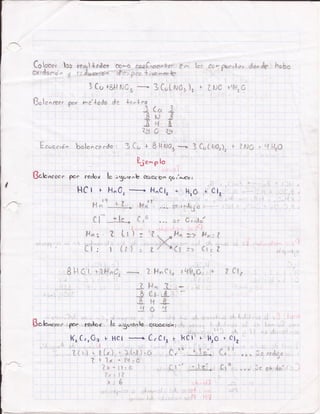 Colocar los resultados como coeficientes en los compuestos donde hubo
oxidación y reducción
3 Cu + 8HNO3 → 3Cu(NO3)2 + 2NO + H2O
Balancear por método de tanteo
3 Cu 3
8 N 8
8 H 8
24 O 24
Ecuación balanceada: 3Cu + 8HNO3 → 3Cu(NO3)2 + 2NO + 4H2O
Ejemplo
Balancear por redox la siguiente ecuación química:
HCl + MnO2 → MnCl2 + H2O + Cl2
Mn+4 +2e- Mn+2 ... se redujo
Cl- -1e- Cl20 ... se oxidó
Mn: 2 (1) = 2 Mn => Mn = 2
Cl: 1 (2) = 2 Cl => Cl = 2
8HCl + 2MnO2 → 2MnCl2 + 4H2O + 2Cl2
2 Mn 2
8 Cl 8
8 H 8
4 O 4
Balancear por redox la siguiente ecuación:
K2Cr2O7 + HCl → CrCl3 + KCl + H2O + Cl2
2(1) + 2(x) + 7(-2) = 0
2 + 2x - 14 = 0
2x - 12 = 0
2x = 12
x = 6